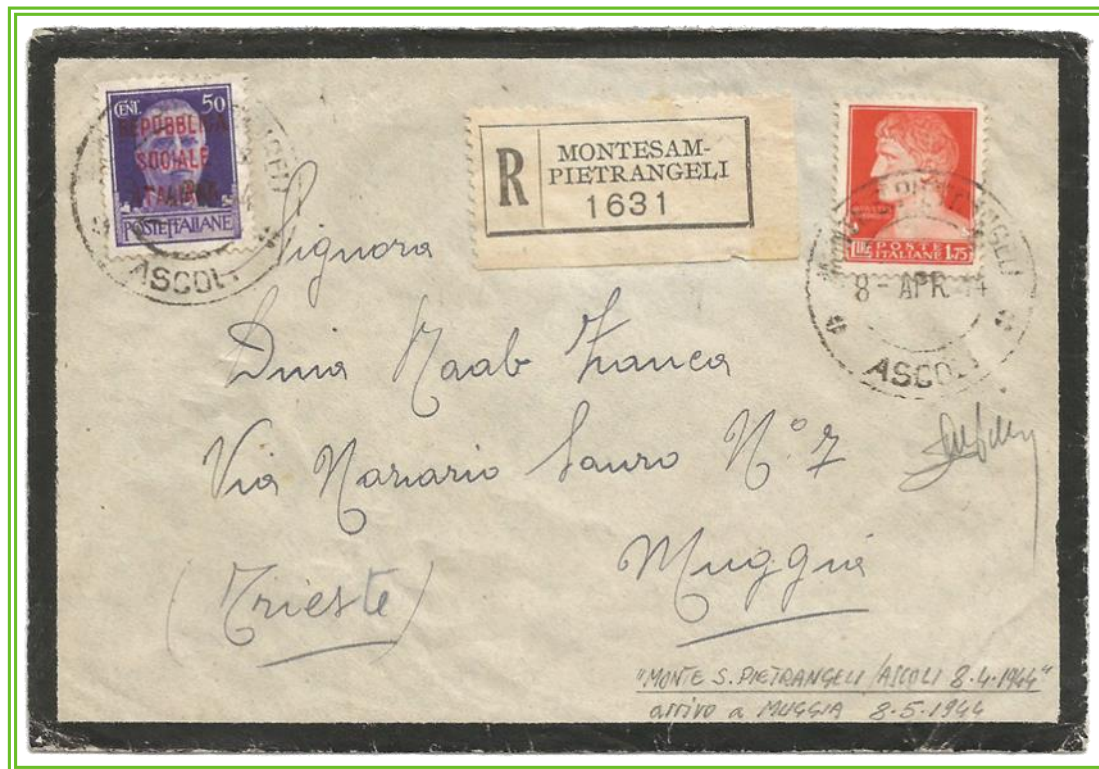 CENT. 50
REPUBBLICA
SOCIALE
ITALIANA
POSTE ITALIANE
ASCOLI
R
MONTESAM-
PIETRANGELI
1631
LIRE 1,75
POSTE
ITALIANE
8 - APR. 44
ASCOLI
Signora
Dina Raab Franca
Via Nazario Sauro N.° 7
Muggia
(Trieste)
"MONTE S. PIETRANGELI / ASCOLI 8.4.1944"
arrivo a MUGGIA 8.5.1944